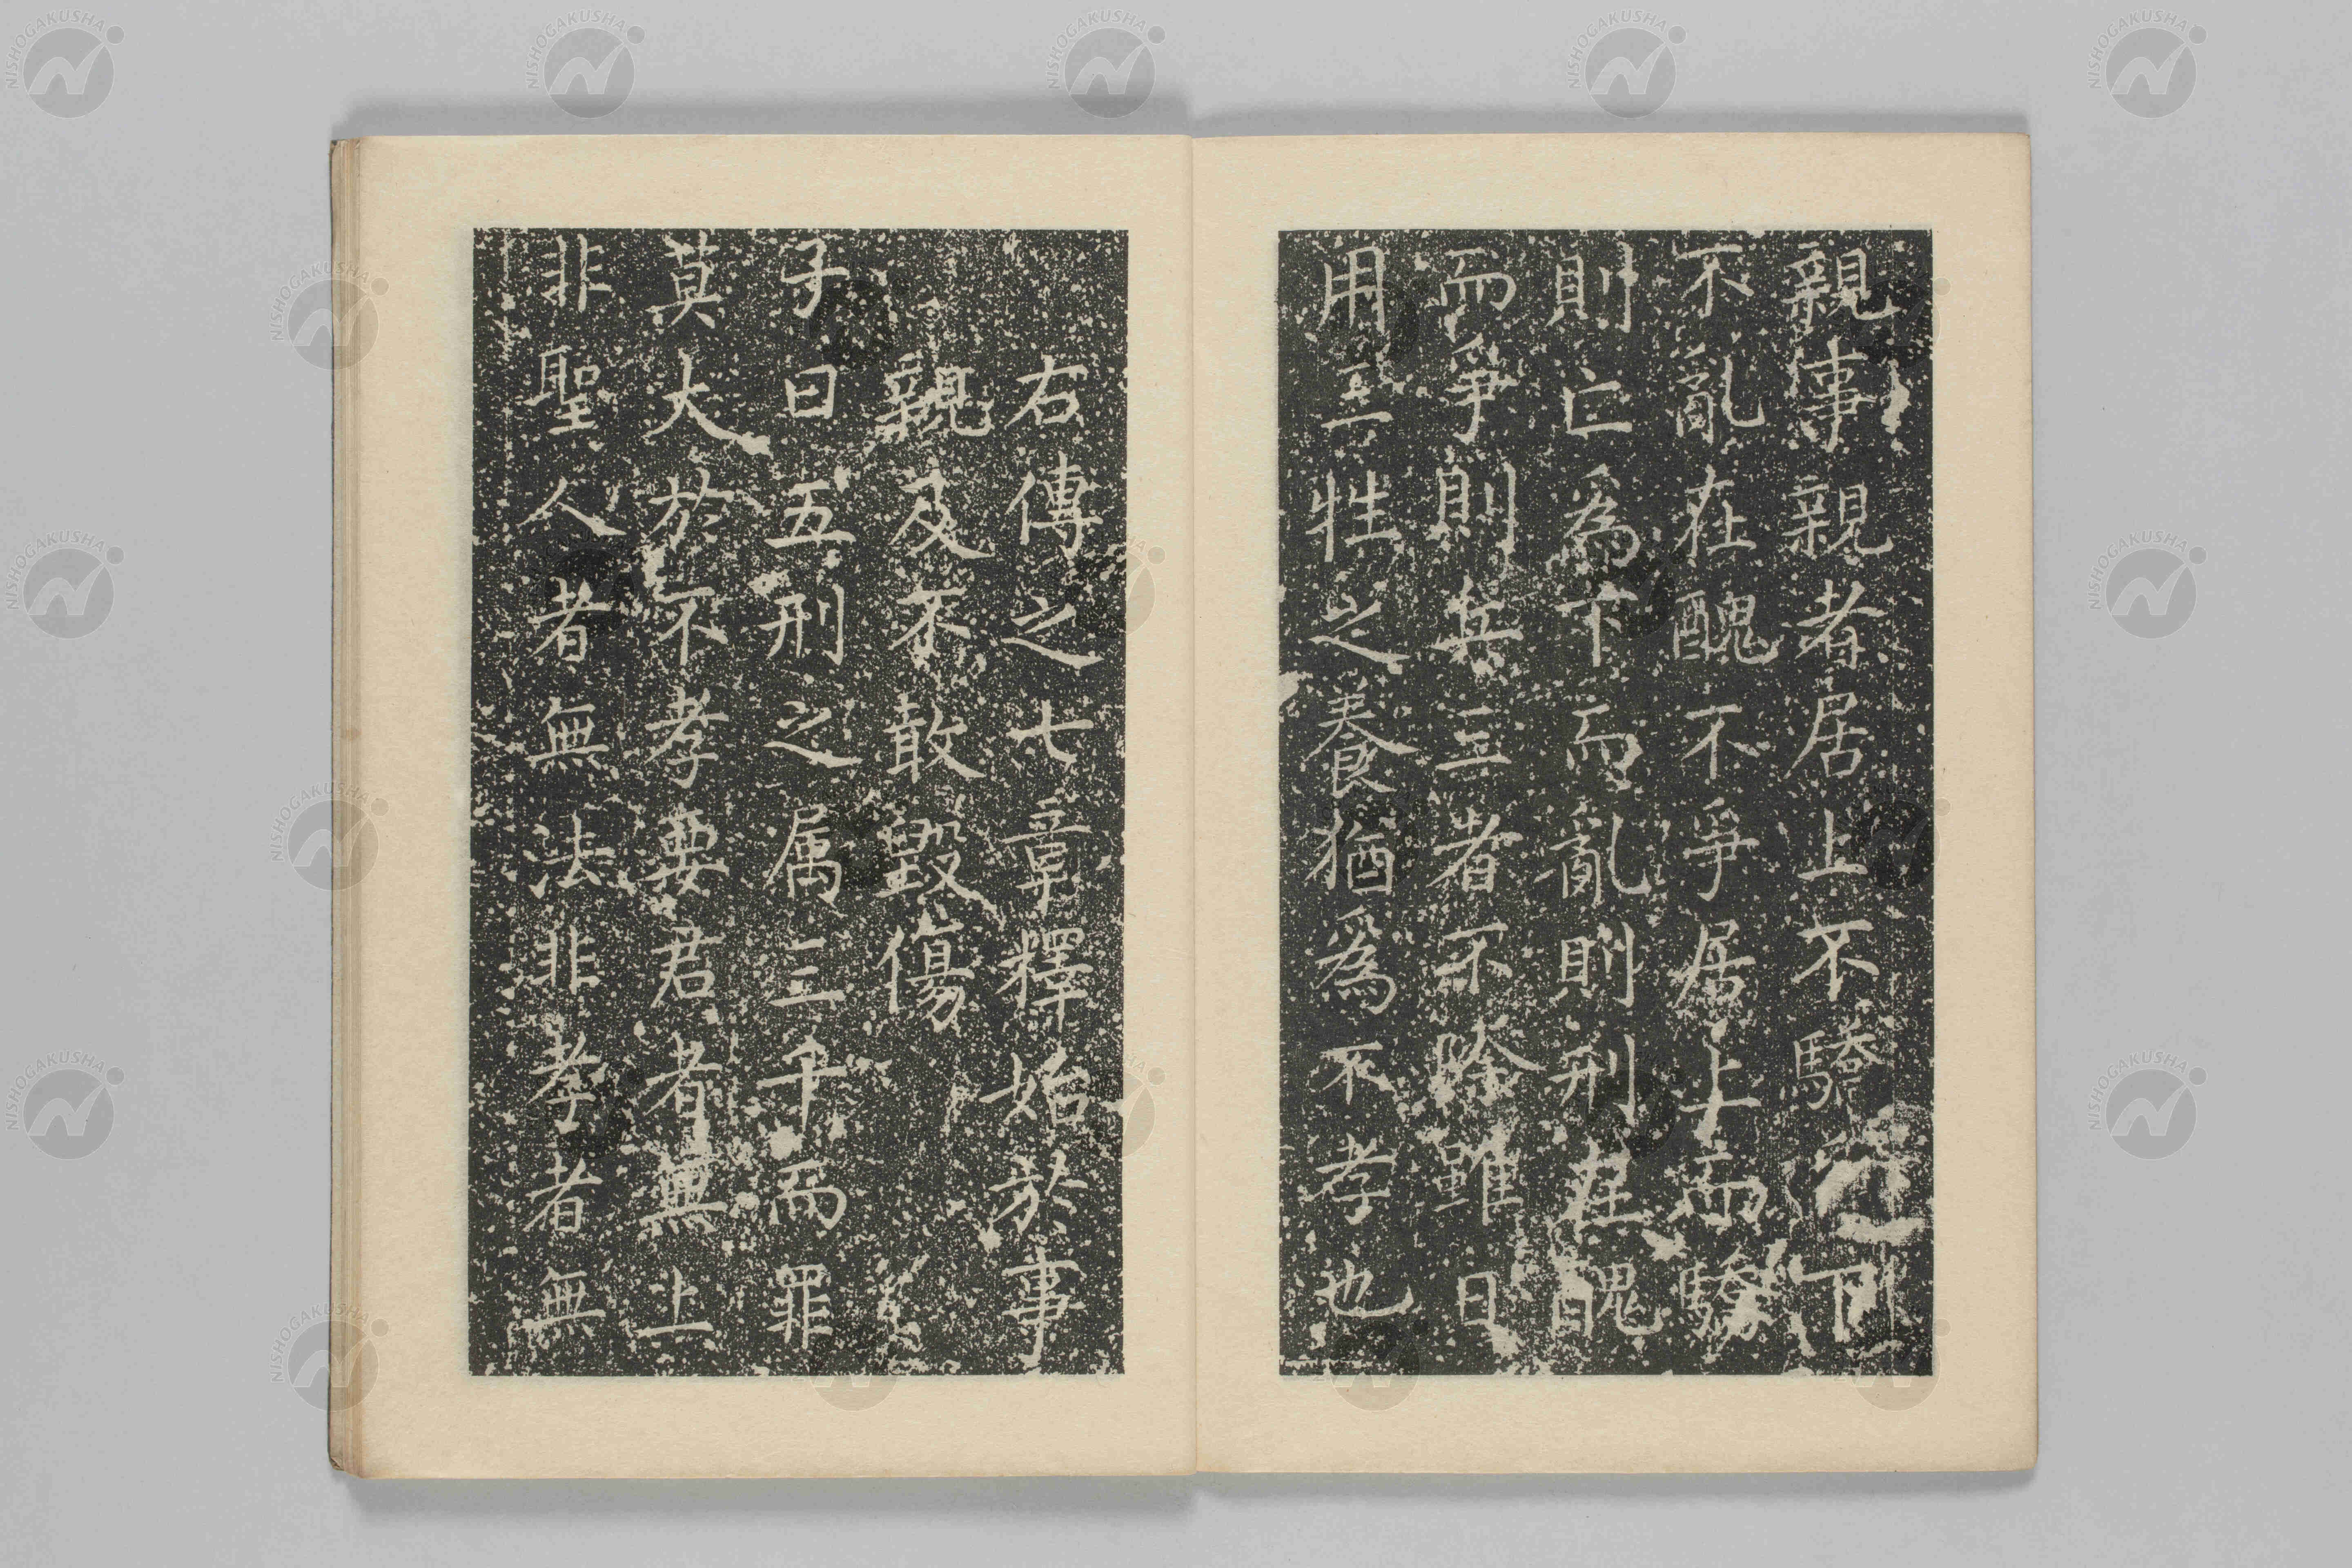 親事親者居上不驕爲下
不亂在醜不爭居上而驕
則亡爲下而亂則刑在醜
而爭則兵三者不除雖日
用三牲之養猶爲不孝也
右傳之七章釋始於事
親及不敢毀傷
子曰五刑之属三千而罪
莫大於不孝要君者無上
非聖人者無法非孝者無
NISHOGAKUSHA